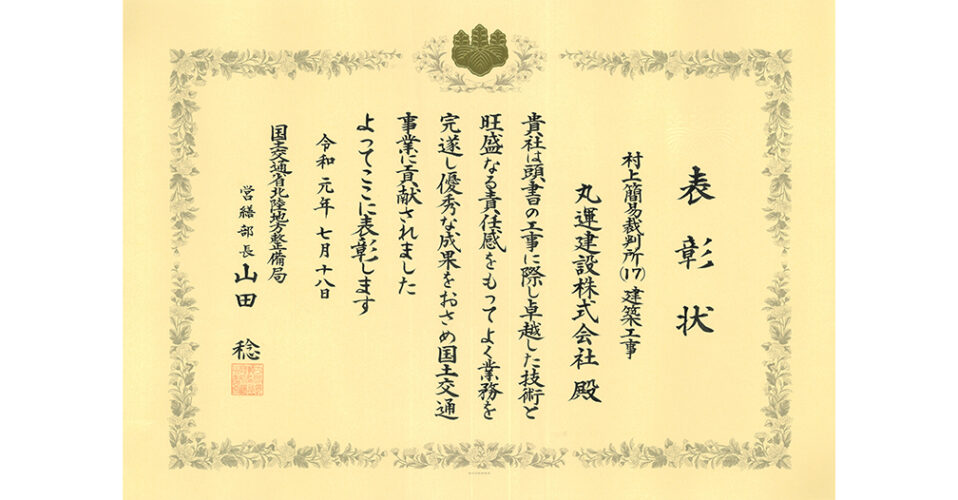 表彰状
村上簡易裁判所(17)建築工事
丸運建設株式会社 殿
貴社は頭書の工事に際し卓越した技術と
旺盛なる責任感をもってよく業務を
完遂し優秀な成果をおさめ国土交通
事業に貢献されました
よってここに表彰します
令和元年七月十八日
国土交通省北陸地方整備局
営繕部長 山田 稔